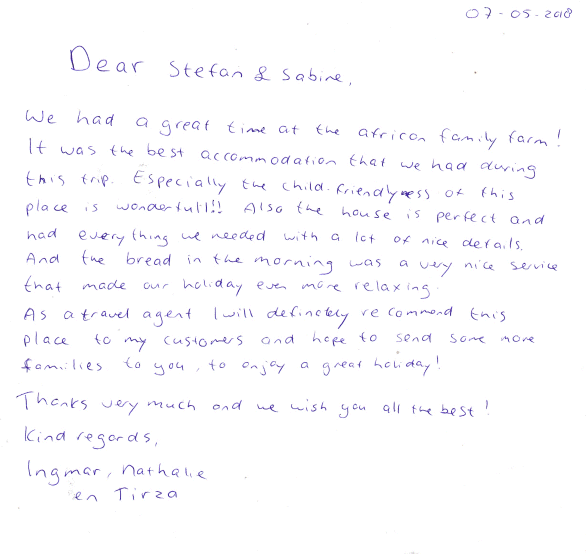 07-05-2018
Dear Stefan & Sabine,
We had a great time at the african family farm!
It was the best accommodation that we had during
this trip. Especially the child-friendlyness of this
place is wonderfull!! Also the house is perfect and
had everything we needed with a lot of nice details.
And the bread in the morning was a very nice service
that made our holiday even more relaxing.
As a travel agent I will definetely recommend this
place to my customers and hope to send some more
families to you, to enjoy a great holiday!
Thanks very much and we wish you all the best!
Kind regards,
Ingmar, Nathalie
en Tirza